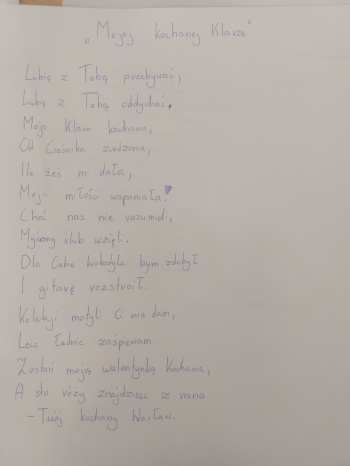 „Mojej kochanej Klarze"
Lubię z Tobą przebywać,
Lubię z Tobą oddychać.
Moja Klaro kochana,
Od Cześnika zrodzona,
Ile żeś mi dała,
Moja miłości wspaniała!
Choć nas nie rozumieli,
Myśmy ślub wzięli.
Dla Ciebie krokodyla bym zdobył
I gitarę rozstroił.
Kolacji motyli Ci nie dam,
Lecz ładnie zaśpiewam.
Zostań moją walentynką Kochana,
A sto róży znajdziesz z rana.
- Twój kochany Wacław.